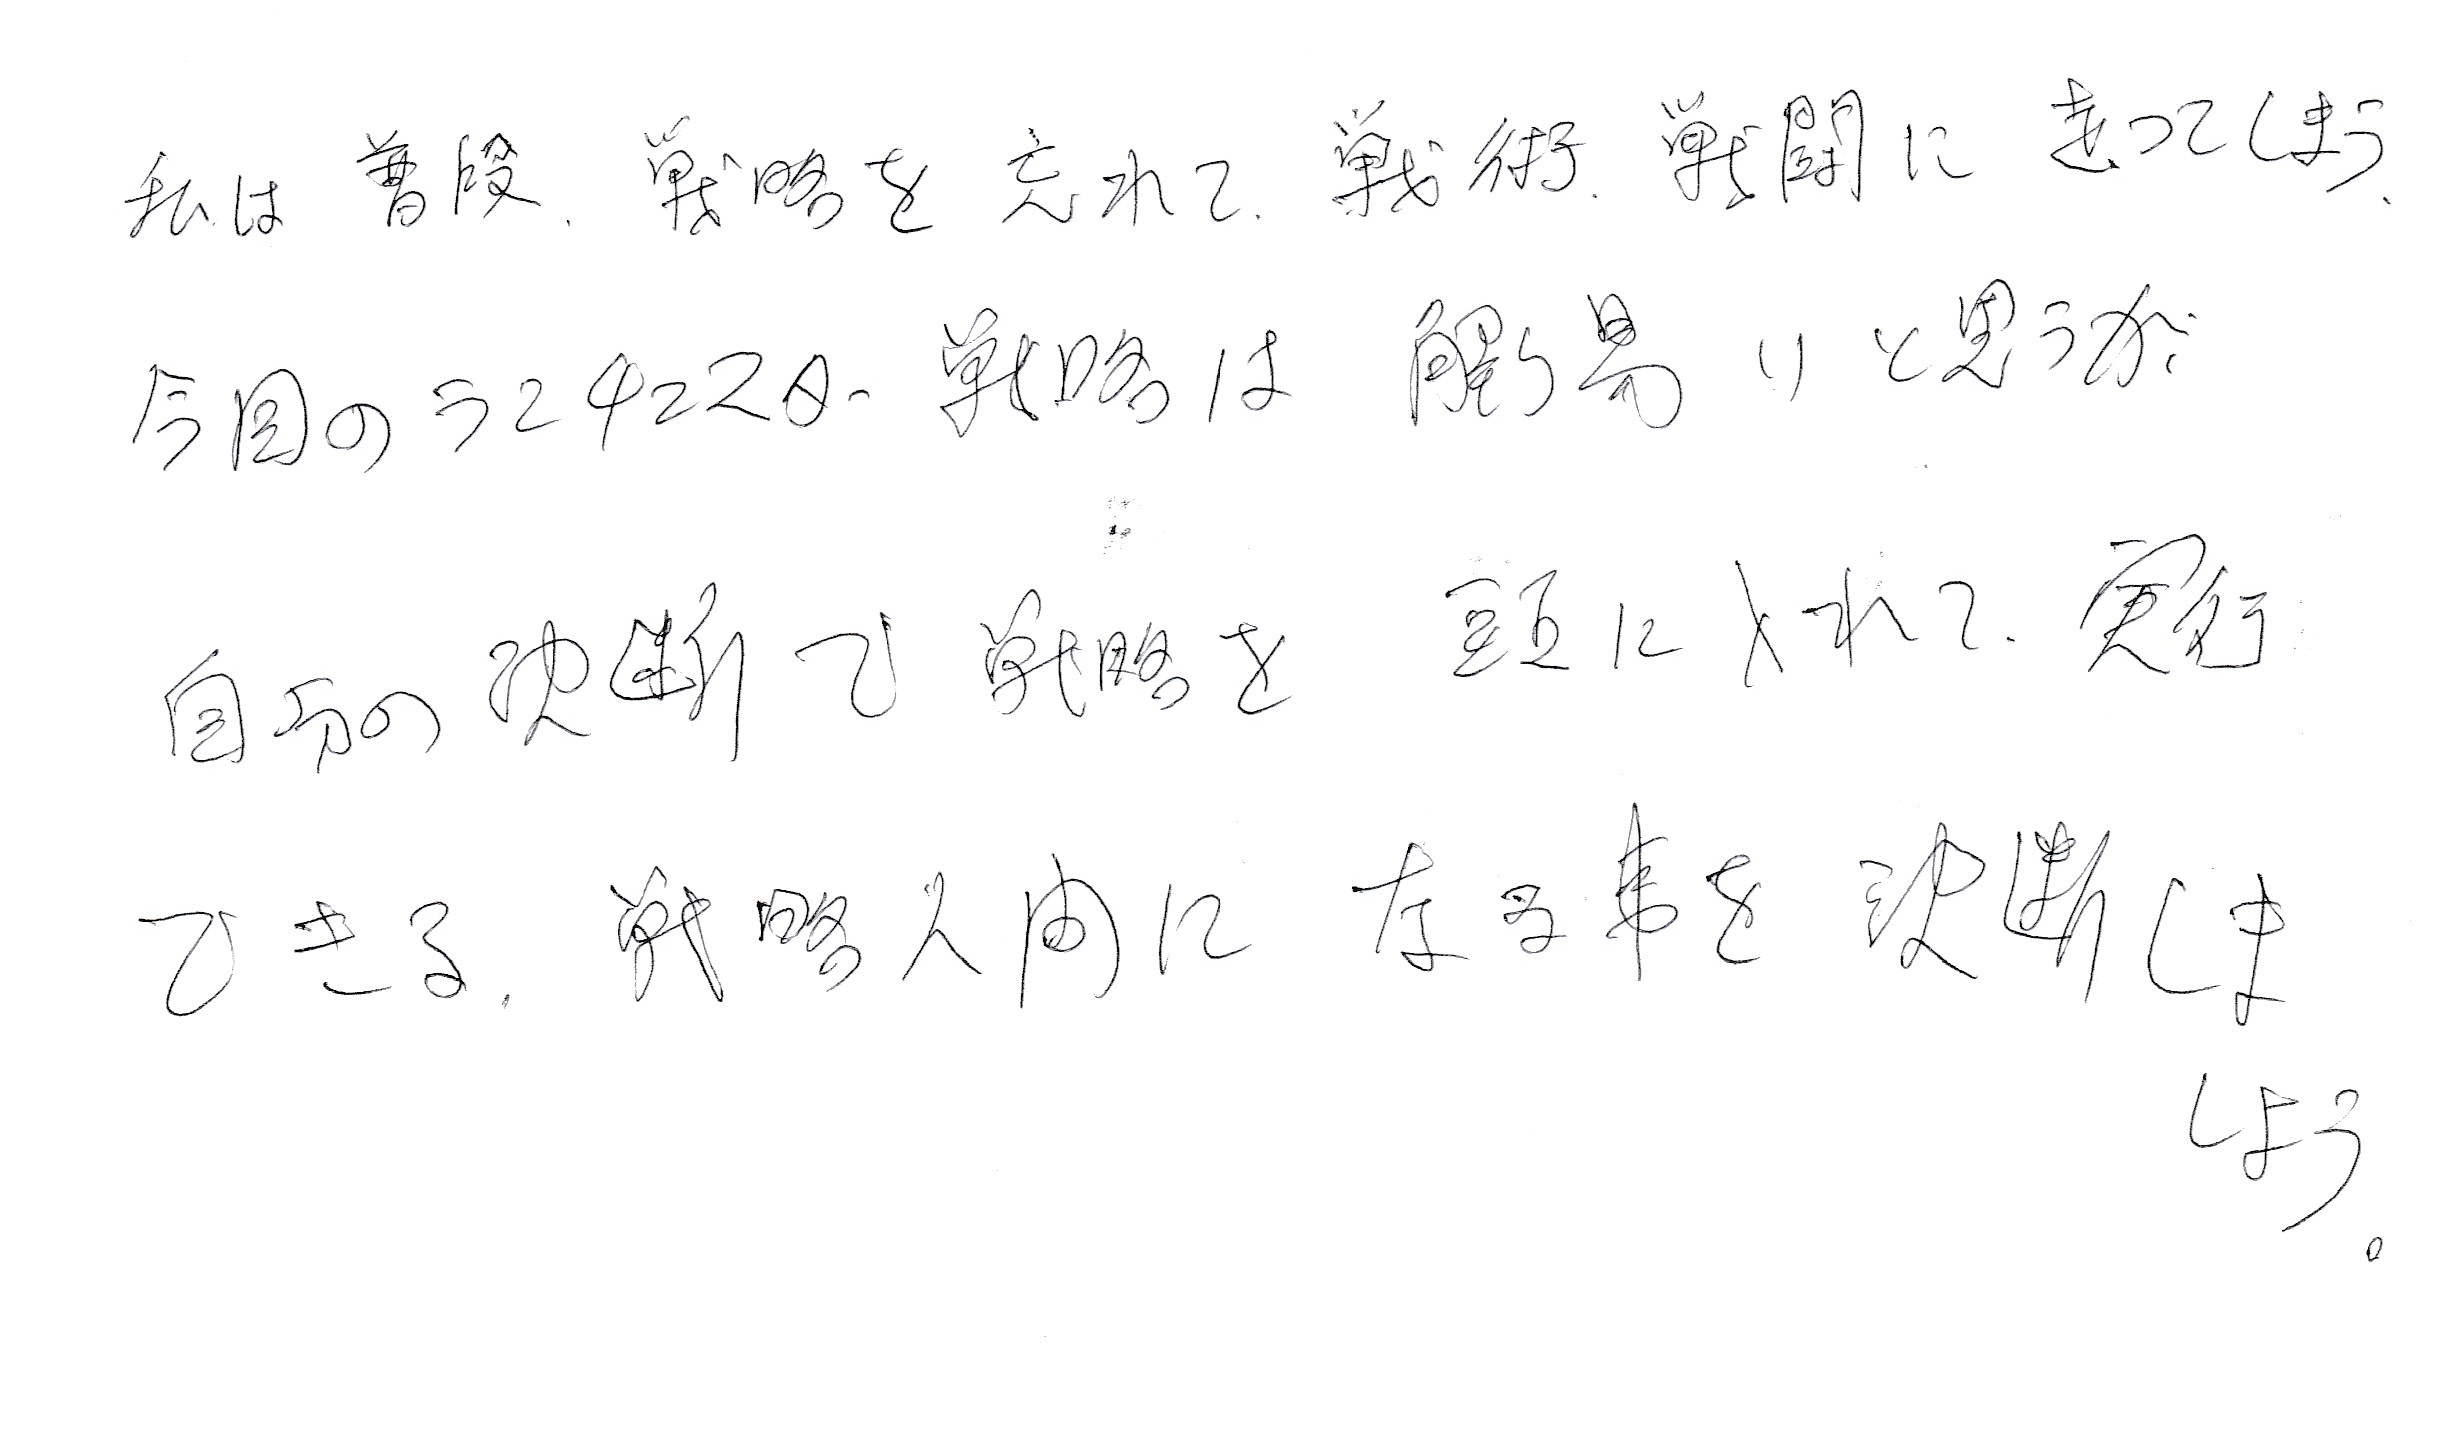 私は普段、戦略を忘れて、戦術、戦闘に走ってしまう、
今回の 戦略は と思うが、
自分の決断で戦略を 頭に入れて、実行
できる、戦略人間になる事を決断しま
しょう。